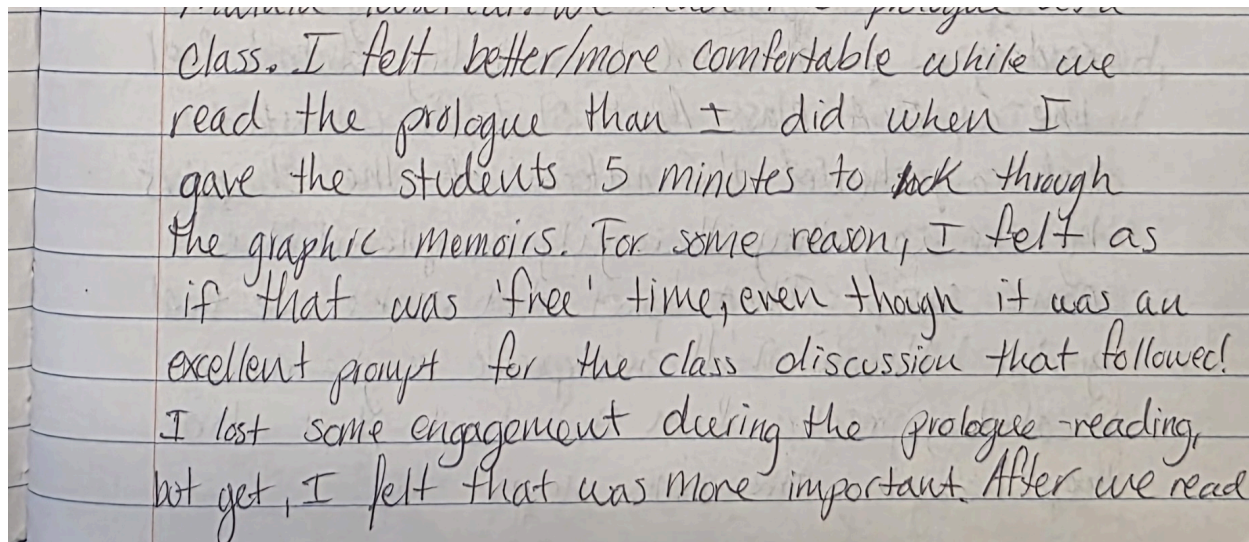 prologue
class. I felt better/more comfortable while we
read the prologue than I did when I
gave the students 5 minutes to look through
the graphic memoirs. For some reason, I felt as
if that was 'free' time, even though it was an
excellent prompt for the class discussion that followed!
I lost some engagement during the prologue-reading,
but yet, I felt that was more important. After we read